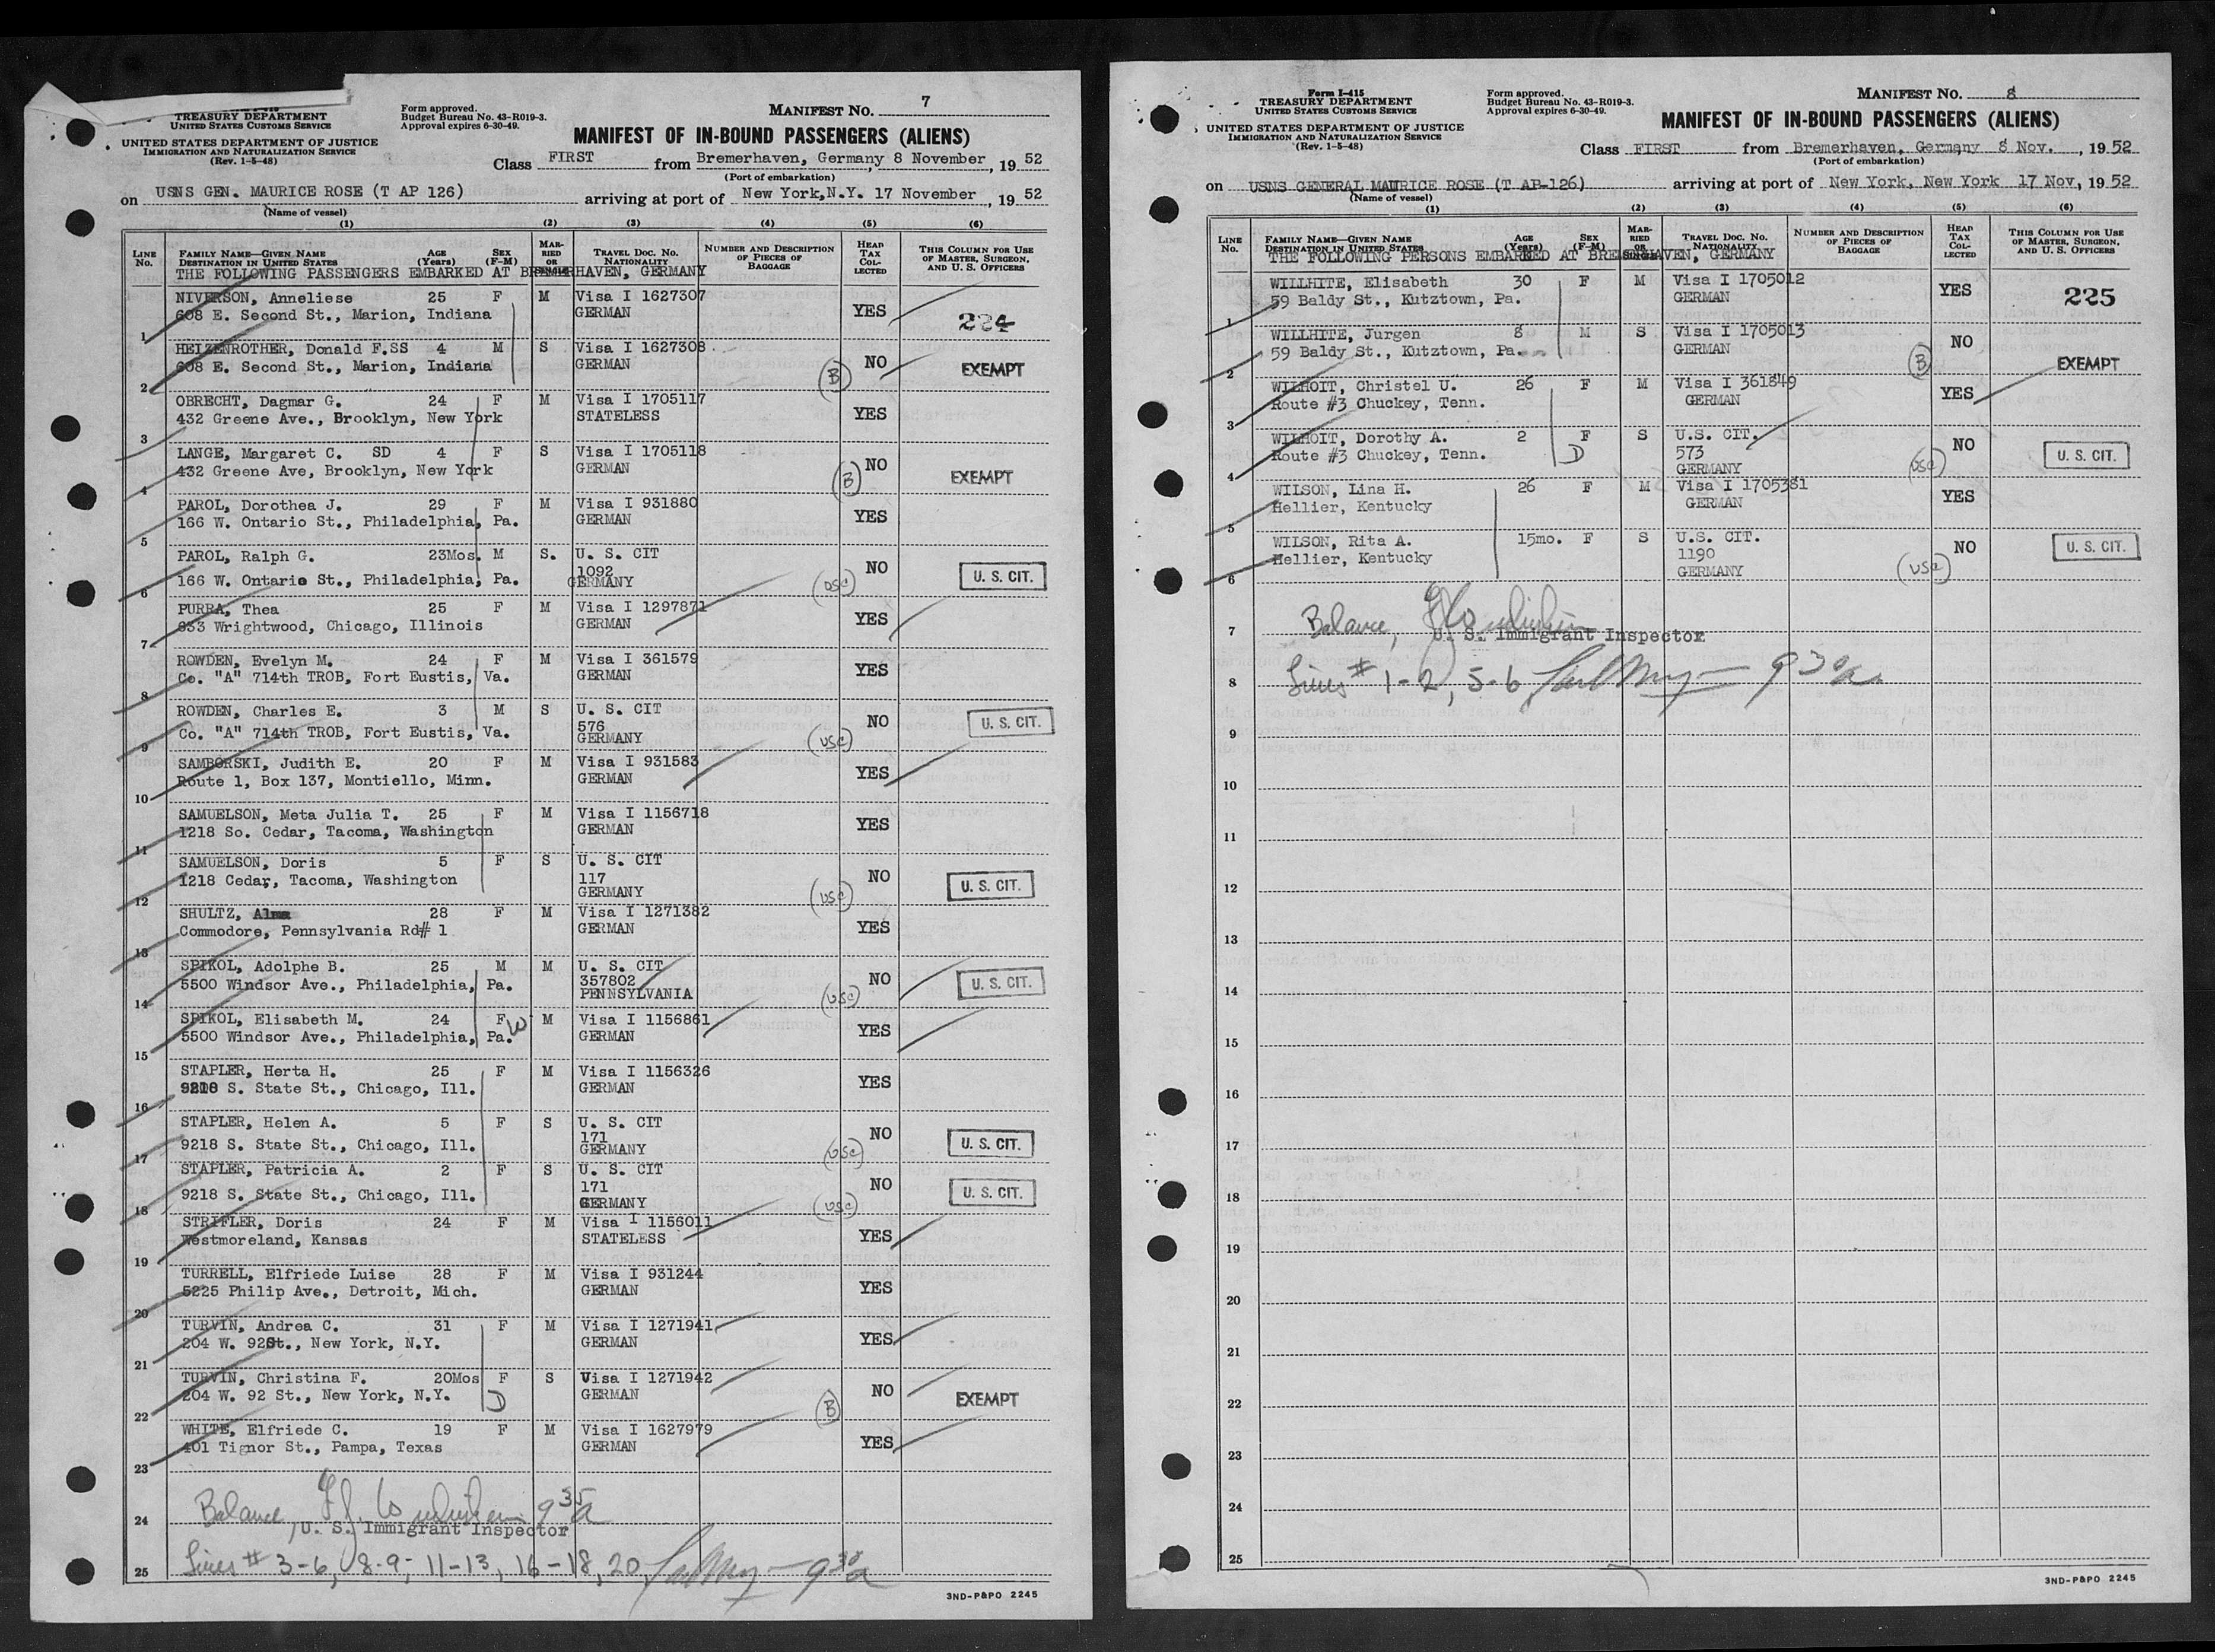 TREASURY DEPARTMENT
UNITED STATES CUSTOMS SERVICE
UNITED STATES DEPARTMENT OF JUSTICE
IMMIGRATION AND NATURALIZATION SERVICE
(Rev. 1-5-48)
Form approved.
Budget Bureau No. 43-R019-3.
Approval expires 6-30-49.
MANIFEST NO. 7
MANIFEST OF IN-BOUND PASSENGERS (ALIENS)
Class FIRST from Bremerhaven, Germany 8 November, 19 52
(Port of embarkation)
on USNS GEN. MAURICE ROSE (T AP 126) arriving at port of New York, N.Y. 17 November, 19 52
(Name of vessel)
(1) (2) (3) (4) (5) (6)
LINE No. FAMILY NAME—GIVEN NAME DESTINATION IN UNITED STATES AGE (Years) SEX (F-M) MARRIED OR TRAVEL DOC. NO. NATIONALITY NUMBER AND DESCRIPTION OF PIECES OF BAGGAGE HEAD TAX COLLECTED THIS COLUMN FOR USE OF MASTER, SURGEON, AND U. S. OFFICERS
THE FOLLOWING PASSENGERS EMBARKED AT BREMERHAVEN, GERMANY
NIVERSON, Anneliese 25 F M Visa I 1627307
1 608 E. Second St., Marion, Indiana GERMAN YES 224
HEIZENROTHER, Donald F.SS 4 M S Visa I 1627308
2 608 E. Second St., Marion, Indiana GERMAN (B) NO EXEMPT
OBRECHT, Dagmar G. 24 F M Visa I 1705117
3 432 Greene Ave., Brooklyn, New York STATELESS YES
LANGE, Margaret C. SD 4 F S Visa I 1705118
4 432 Greene Ave, Brooklyn, New York GERMAN (B) NO EXEMPT
PAROL, Dorothea J. 29 F M Visa I 931880
5 166 W. Ontario St., Philadelphia, Pa. GERMAN YES
PAROL, Ralph G. 23Mos. M S. U. S. CIT
1092
6 166 W. Ontario St., Philadelphia, Pa. GERMANY (USC) NO U. S. CIT.
PURRA, Thea 25 F M Visa I 1297871
7 833 Wrightwood, Chicago, Illinois GERMAN YES
ROWDEN, Evelyn M. 24 F M Visa I 361579
8 Co. "A" 714th TROB, Fort Eustis, Va. GERMAN YES
ROWDEN, Charles E. 3 M S U. S. CIT
576
9 Co. "A" 714th TROB, Fort Eustis, Va. GERMANY (USC) NO U. S. CIT.
SAMBORSKI, Judith E. 20 F M Visa I 931583
10 Route 1, Box 137, Montiello, Minn. GERMAN YES
SAMUELSON, Meta Julia T. 25 F M Visa I 1156718
11 1218 So. Cedar, Tacoma, Washington GERMAN YES
SAMUELSON, Doris 5 F S U. S. CIT
117
12 1218 Cedar, Tacoma, Washington GERMANY (USC) NO U. S. CIT.
SHULTZ, Alma 28 F M Visa I 1271382
13 Commodore, Pennsylvania Rd# 1 GERMAN YES
SPIKOL, Adolphe B. 25 M M U. S. CIT
357802
14 5500 Windsor Ave., Philadelphia, Pa. PENNSYLVANIA (USC) NO U. S. CIT.
SPIKOL, Elisabeth M. 24 F W M Visa I 1156861
15 5500 Windsor Ave., Philadelphia, Pa. GERMAN YES
STAPLER, Herta H. 25 F M Visa I 1156326
16 9218 S. State St., Chicago, Ill. GERMAN YES
STAPLER, Helen A. 5 F S U. S. CIT
171
17 9218 S. State St., Chicago, Ill. GERMANY (USC) NO U. S. CIT.
STAPLER, Patricia A. 2 F S U. S. CIT
171
18 9218 S. State St., Chicago, Ill. GERMANY (USC) NO U. S. CIT.
STRIFLER, Doris 24 F M Visa I 1156011
19 Westmoreland, Kansas STATELESS YES
TURRELL, Elfriede Luise 28 F M Visa I 931244
20 5225 Philip Ave., Detroit, Mich. GERMAN YES
TURVIN, Andrea C. 31 F M Visa I 1271941
21 204 W. 92St., New York, N.Y. GERMAN YES
TURVIN, Christina F. 20Mos F S Visa I 1271942
22 204 W. 92 St., New York, N.Y. D GERMAN (B) NO EXEMPT
WHITE, Elfriede C. 19 F M Visa I 1627979
23 401 Tignor St., Pampa, Texas GERMAN YES
24 Balance, 9 35 a
U. S. Immigrant Inspector
25 Lines # 3-6, 8-9, 11-13, 16-18, 20, 9 30 a
3ND-P&PO 2245
Form I-415
TREASURY DEPARTMENT
UNITED STATES CUSTOMS SERVICE
UNITED STATES DEPARTMENT OF JUSTICE
IMMIGRATION AND NATURALIZATION SERVICE
(Rev. 1-5-48)
Form approved.
Budget Bureau No. 43-R019-3.
Approval expires 6-30-49.
MANIFEST NO. 8
MANIFEST OF IN-BOUND PASSENGERS (ALIENS)
Class FIRST from Bremerhaven, Germany 8 Nov., 19 52
(Port of embarkation)
on USNS GENERAL MAURICE ROSE (T AP-126) arriving at port of New York, New York 17 Nov, 19 52
(Name of vessel)
(1) (2) (3) (4) (5) (6)
LINE No. FAMILY NAME—GIVEN NAME DESTINATION IN UNITED STATES AGE (Years) SEX (F-M) MARRIED OR TRAVEL DOC. NO. NATIONALITY NUMBER AND DESCRIPTION OF PIECES OF BAGGAGE HEAD TAX COLLECTED THIS COLUMN FOR USE OF MASTER, SURGEON, AND U. S. OFFICERS
THE FOLLOWING PERSONS EMBARKED AT BREMERHAVEN, GERMANY
WILLHITE, Elisabeth 30 F M Visa I 1705012
1 59 Baldy St., Kutztown, Pa. GERMAN YES 225
WILLHITE, Jurgen 8 M S Visa I 1705013
2 59 Baldy St., Kutztown, Pa. GERMAN (B) NO EXEMPT
WILHOIT, Christel U. 26 F M Visa I 361849
3 Route #3 Chuckey, Tenn. GERMAN YES
WILHOIT, Dorothy A. 2 F S U.S. CIT.
573
4 Route #3 Chuckey, Tenn. D GERMANY (USC) NO U. S. CIT.
WILSON, Lina H. 26 F M Visa I 1705381
5 Hellier, Kentucky GERMAN YES
WILSON, Rita A. 15mo. F S U.S. CIT.
1190
6 Hellier, Kentucky GERMANY (USC) NO U. S. CIT.
7 Balance,
U. S. Immigrant Inspector
8 Lines # 1-2, 5-6 9 30 a.
9
10
11
12
13
14
15
16
17
18
19
20
21
22
23
24
25
3ND-P&PO 2245